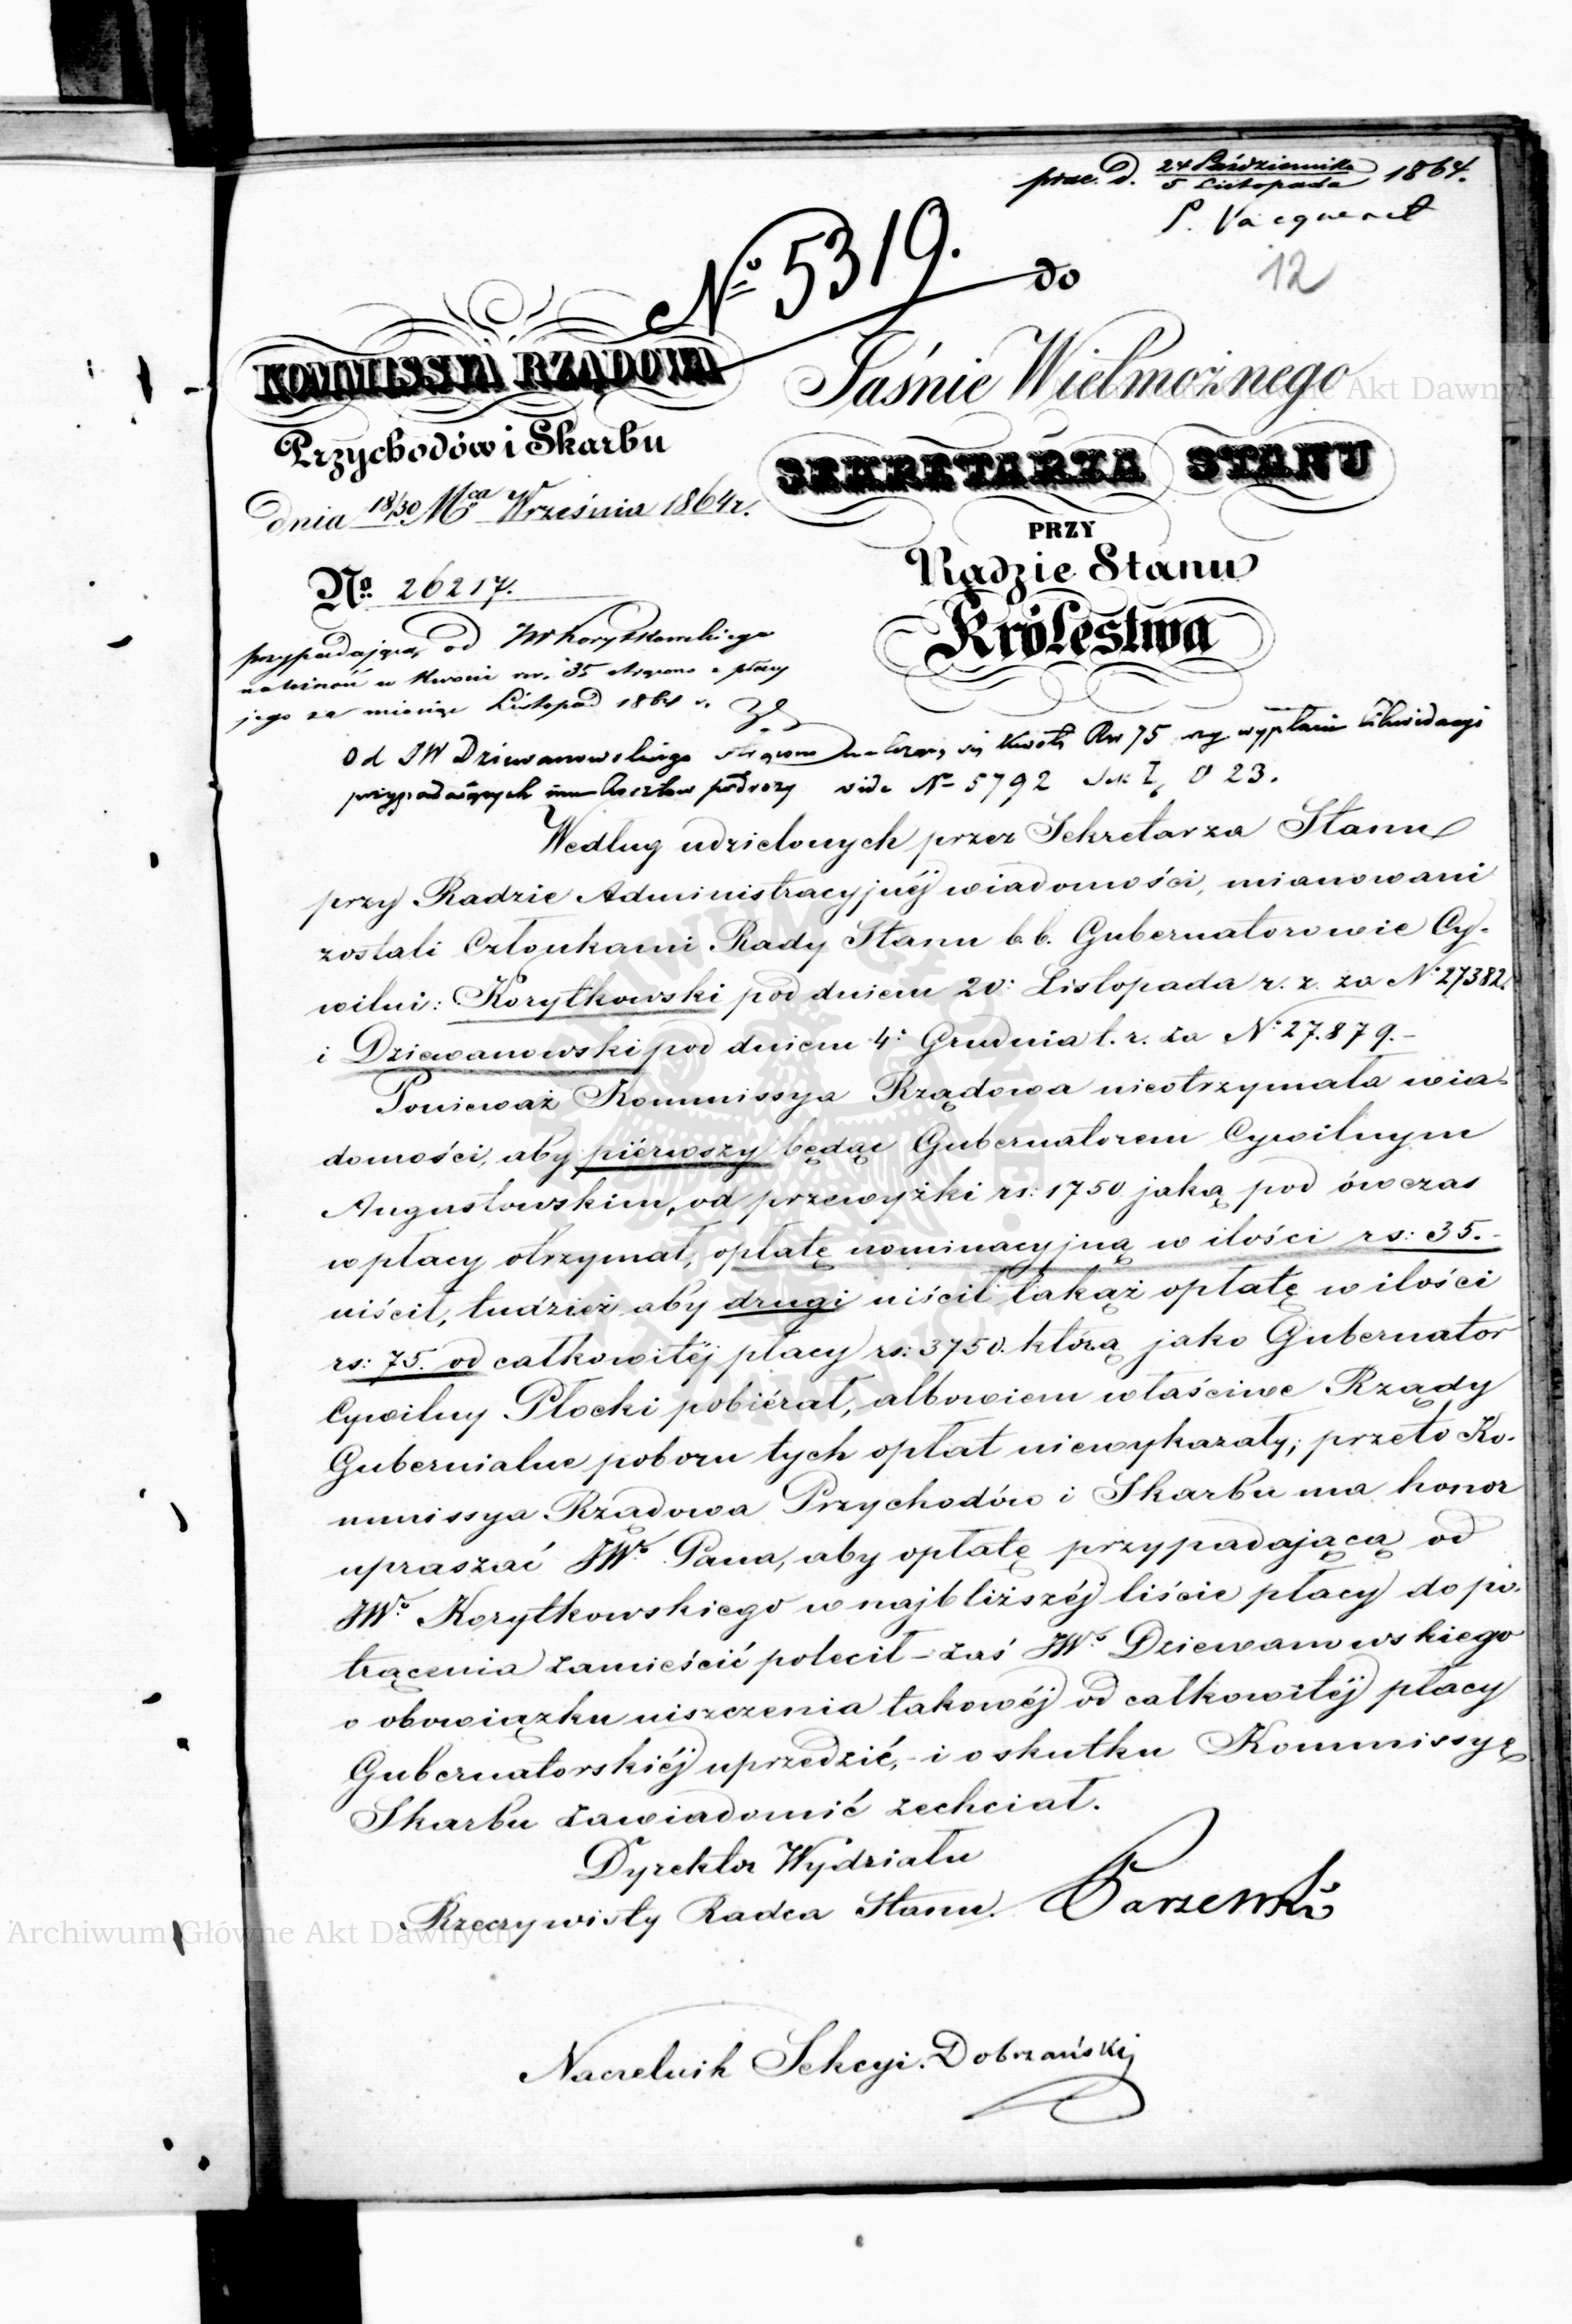 prae. d. 24 Października 1864.
5 Listopada
P. Vacqueret
12
№ 5319.
do
KOMMISSYA RZĄDOWA
Przychodów i Skarbu
dnia 18/30 Mca Września 1864 r.
№ 26217.
Jaśnie Wielmożnego
SEKRETARZA STANU
PRZY
Radzie Stanu
Królestwa
przypadającą od JW Korytkowskiego
należność w kwocie rs. 35 strącono z płacy
jego za miesiąc Listopad 1864 r.
Od JW Dziewanowskiego strącono należącą się kwotę Rsr 75 przy wypłacie likwidacyi
przypadających mu kosztów podróży vide № 5792
Według udzielonych przez Sekretarza Stanu
przy Radzie Administracyjnéj wiadomości, mianowani
zostali Członkami Rady Stanu b.b. Gubernatorowie Cy-
wilni: Korytkowski pod dniem 20: Listopada r. z. za N: 27382.
i Dziewanowski pod dniem 4: Grudnia t. r. za N: 27.879.-
Ponieważ Kommissya Rządowa nieotrzymała wia-
domości, aby piérwszy będąc Gubernatorem Cywilnym
Augustowskim, od przewyżki rs: 1750 jaką pod ówczas
w płacy otrzymał, opłatę nominacyjną w ilości rs: 35.-
uiścił, tudzież aby drugi uiścił takąż opłatę w ilości
rs: 75. od całkowitéj płacy rs: 3750. którą jako Gubernator
Cywilny Płocki pobiérał, albowiem właściwe Rządy
Gubernialne poboru tych opłat niewykazały; przeto Ko-
mmissya Rządowa Przychodów i Skarbu ma honor
upraszać JWo. Pana, aby opłatę przypadającą od
JWo. Korytkowskiego w najbliższéj liście płacy do po-
trącenia zamieścić polecił - zaś JWo Dziewanowskiego
o obowiązku uiszczenia takowéj od całkowitéj płacy
Gubernatorskiéj uprzedzić, - i o skutku Kommissyę
Skarbu zawiadomić zechciał.
Dyrektor Wydziału
Rzeczywisty Radca Stanu.
Naczelnik Sekcyi. Dobrzański
Archiwum Główne Akt Dawnych
Archiwum Główne Akt Dawnych